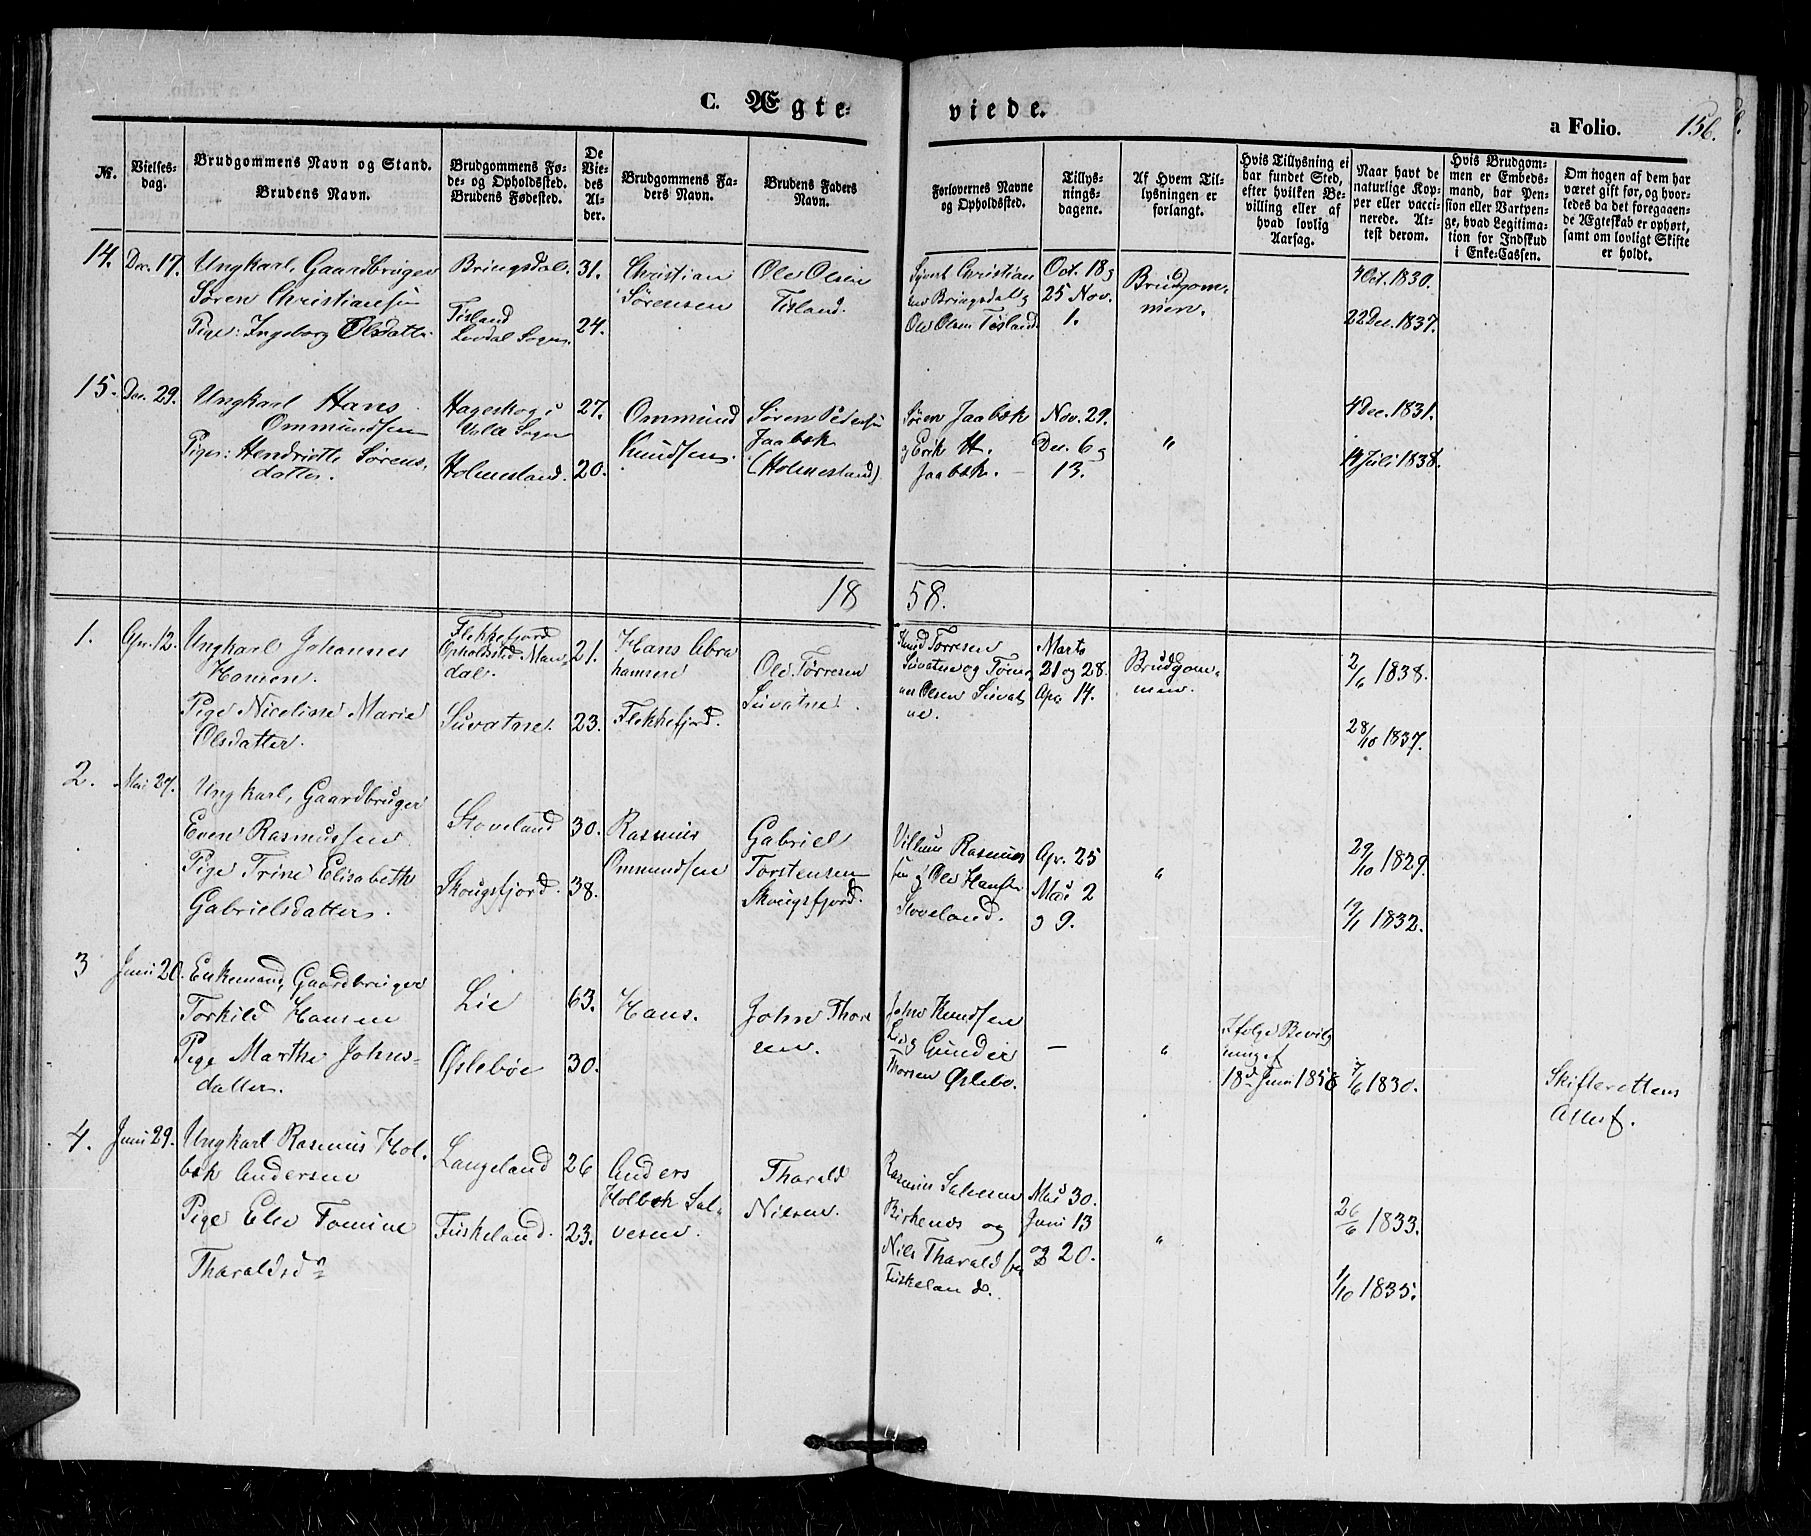 C. Ægte-
viede.
a Folio. 156.
No.
Vielses-
dag.
Brudgommens Navn og Stand.
Brudens Navn.
Brudgommens Fø-
de- og Opholdssted.
Brudens Fødested.
De
Vie-
des
Al-
der.
Brudgommens Fa-
ders Navn.
Brudens Faders
Navn.
Forlovernes Navne
og Opholdssted.
Tillys-
nings-
dagene.
Af Hvem Til-
lysningen er
forlangt.
Hvis Tillysning ei
har fundet Sted,
efter hvilken Be-
villing eller af
hvad lovlig
Aarsag.
Naar havt de
naturlige Kop-
per eller vacci-
nerede. At-
test derom.
Hvis Brudgom-
men er Embeds-
mand, har Pen-
sion eller Vartpen-
ge, hvad Legitima-
tion for Indskud
i Enke-Cassen.
Om nogen af dem har
været gift før, og hvor-
ledes da det foregaaen-
de Ægteskab er ophørt,
samt om lovligt Skifte
er holdt.
14. Dec. 17.
Ungkarl, Gaardbruger
Søren Christiansen
Pige: Ingeborg Olsdatter
Bringsdal.
Tisland
Sogn.
31.
24.
Christian
Sørensen
Ole Olsen
Tisland.
Christian
Bringsdal og
Ole Olsen Tisland
Oct. 18 og
25 Nov.
1.
Brudgom-
men.
4 Oct. 1830.
22 Dec. 1837.
15. Dec. 29.
Ungkarl Hans
Ommundsen
Pige: Hendriette Sørens-
datter.
Hageskog i
Sogn
Holmesland.
27.
20.
Ommund
Knudsen
Søren Pedersen
Jaabæk
(Holmesland)
Søren Jaabæk
og Erik H.
Jaabæk.
Nov. 29.
Dec. 6 og
13.
"
4 Dec. 1831.
14 Juli 1838.
18 58.
1. Apr. 12.
Ungkarl Johannes
Hansen.
Pige Nicoline Marie
Olsdatter.
Flekkefjord
Opholdssted Man-
dal.
Suvatne.
21.
23.
Hans Abra
hamsen
Flekkefjord.
Ole Tørresen
Suvatne.
Knud Torresen
Suvatne og
Olsen Suvat
ne.
Marts
21 og 28.
Apr. 14.
Brudgom-
men.
2/6 1838.
28/10 1837.
2. Mai 27.
Ungkarl, Gaardbruger
Even Rasmussen
Pige Trine Elisabeth
Gabrielsdatter.
Stoveland
Skougsfjord.
30.
38.
Rasmus
Ommundsen
Gabriel
Torstensen
Skougsfjord.
Villum Rasmus
sen og Ole Hansen
Stoveland.
Apr. 25
Mai 2
og 9.
"
29/10 1829.
1832.
3 Juni 20.
Enkemand, Gaardbruger
Torkild Hansen
Pige Marthe Johns-
datter.
Lie
Øslebøe
63.
30.
Hans.
John Thor
sen.
John Knudsen
Lie og Gunder
Thorsen Øslebø.
—
"
Ifølge Bevilg
ning af
18d Juni 1858
7/6 1830.
Skifterettens
Attest.
4. Juni 29.
Ungkarl Rasmus Hol-
bæk Andersen
Pige Else Tomine
Tharaldsdr
Langeland
Fuskeland.
26
23.
Anders
Holbæk Sal-
vesen.
Tharald
Nilsen.
Rasmus Salvesen
Birkenes og
Nils Tharaldsen
Fuskeland.
Mai 30.
Juni 13
og 20.
"
26/6 1833.
1/10 1835.